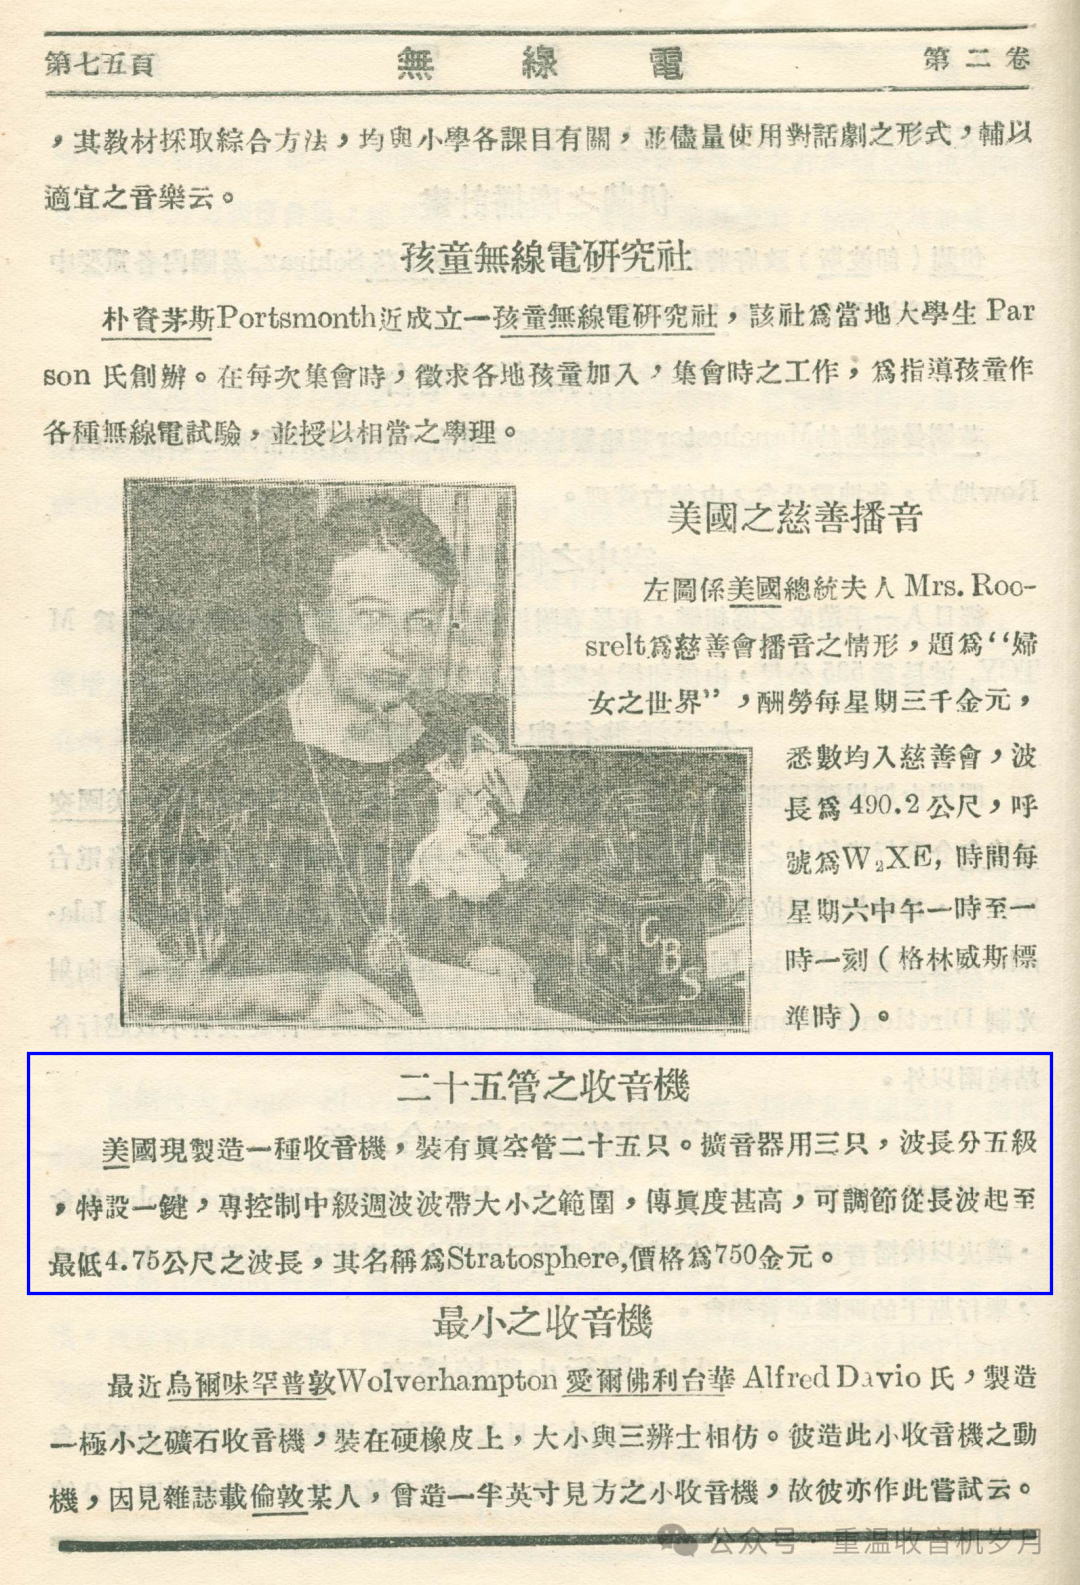 第七五頁 無線電 第二卷
，其教材採取綜合方法，均與小學各課目有關，並儘量使用對話劇之形式，輔以
適宜之音樂云。
孩童無線電研究社
朴資茅斯Portsmonth近成立一孩童無線電研究社，該社爲當地大學生 Par
son 氏創辦。在每次集會時，徵求各地孩童加入，集會時之工作，爲指導孩童作
各種無線電試驗，並授以相當之學理。
美國之慈善播音
左圖係美國總統夫人 Mrs. Roo-
srelt爲慈善會播音之情形，題爲“婦
女之世界”，酬勞每星期三千金元，
悉數均入慈善會，波
長爲490.2公尺，呼
號爲W₂XE, 時間每
星期六中午一時至一
時一刻（格林威斯標
準時）。
CBS
二十五管之收音機
美國現製造一種收音機，裝有眞空管二十五只。擴音器用三只，波長分五級
，特設一鍵，專控制中級週波波帶大小之範圍，傳眞度甚高，可調節從長波起至
最低4.75公尺之波長，其名稱爲Stratosphere,價格爲750金元。
最小之收音機
最近烏爾味罕普敦Wolverhampton 愛爾佛利台華 Alfred Davio 氏，製造
一極小之礦石收音機，裝在硬橡皮上，大小與三辨士相仿。彼造此小收音機之動
機，因見雜誌載倫敦某人，曾造一半英寸見方之小收音機，故彼亦作此嘗試云。
公众号·重温收音机岁月